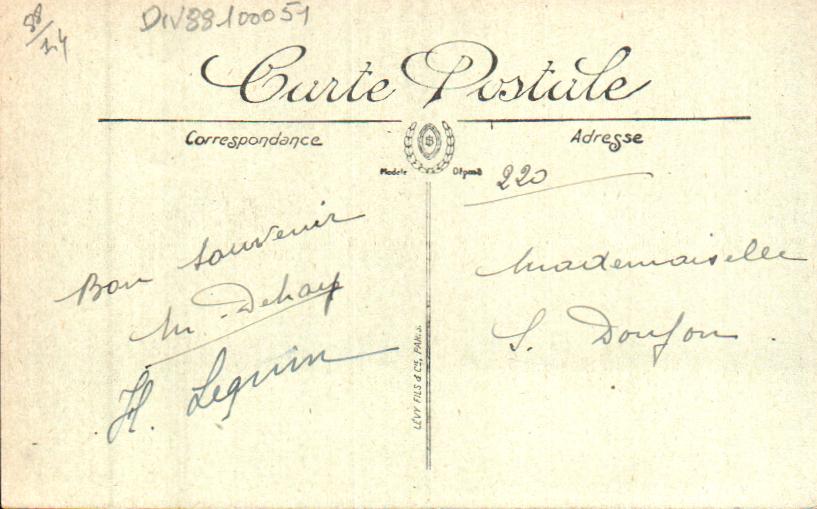 88/24
DIV88100051
Carte Postale
Correspondance
Adresse
Modèle Déposé
220
Bon souvenir
M. Dehay
H. Lequin
Mademoiselle
S.
LÉVY FILS & Cie, PARIS.